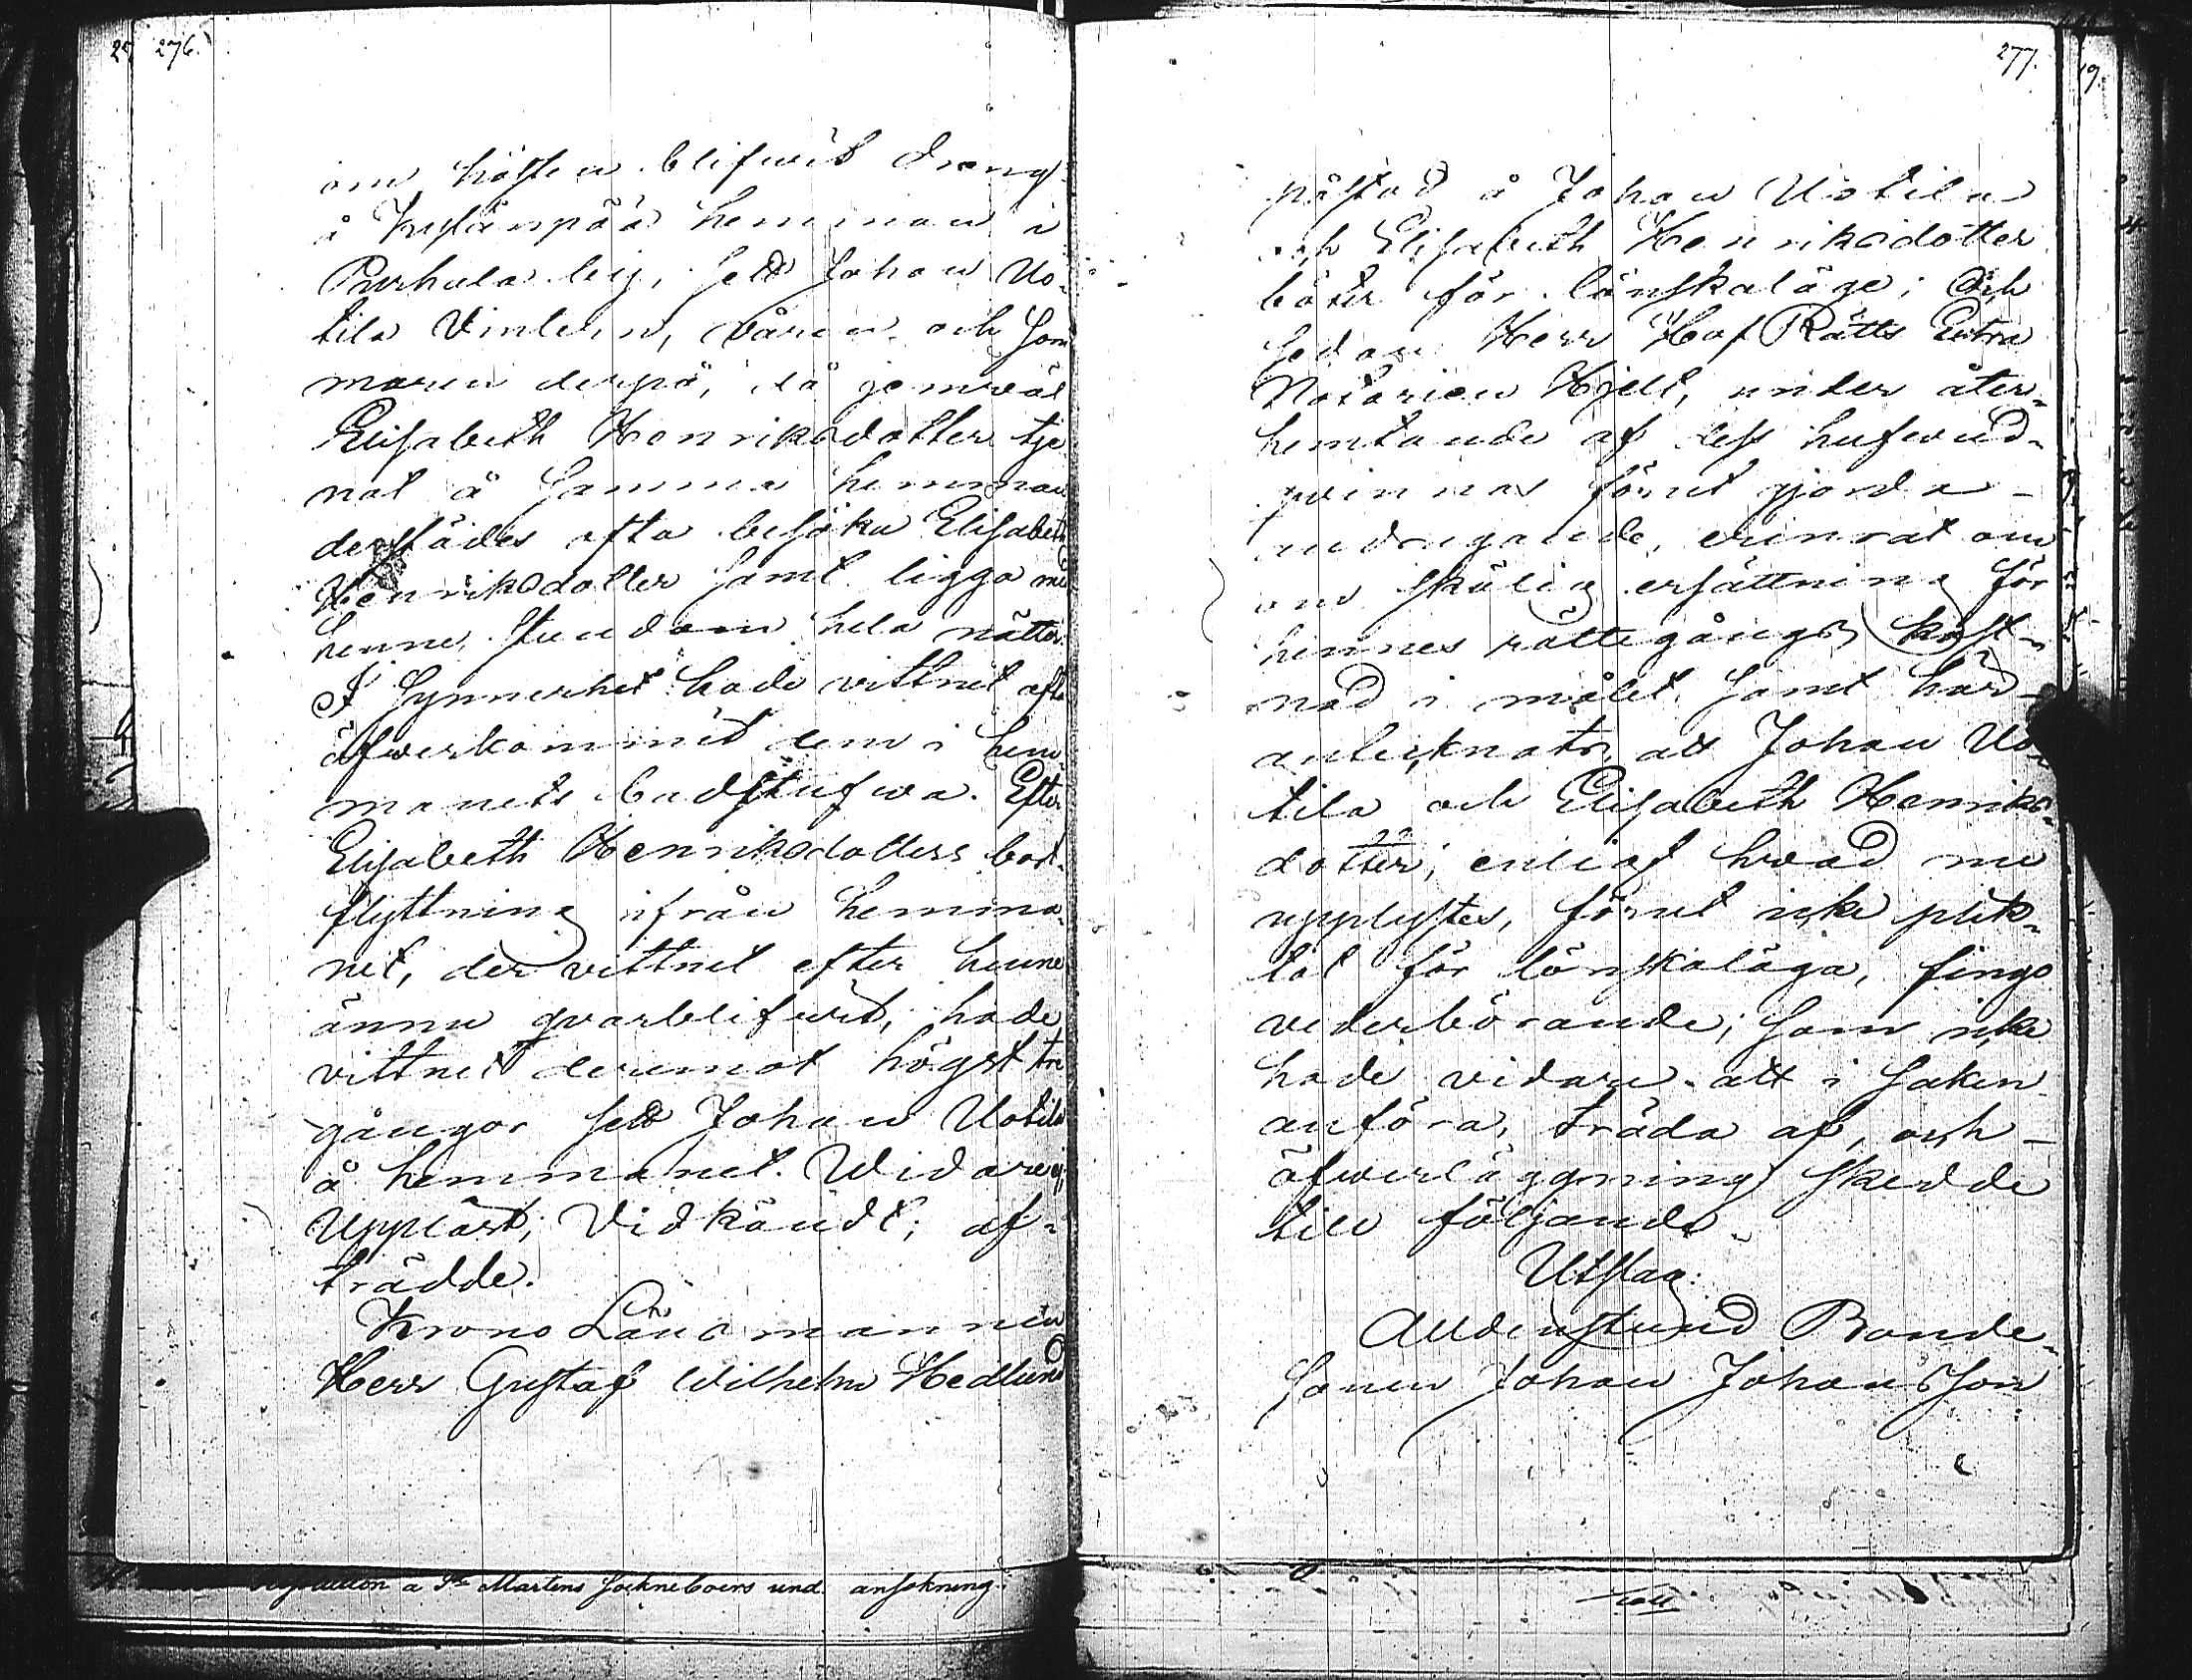 276.
om hösten blifwit dreng
å Kylänpää hemman i
Purhala by, sett Johan Uo-
tila Vintern, våren och som
maren derpå, då jemwäl
Elisabeth Henriksdotter tje
nat å samma hemman
derstädes ofta besöka Elisabeth
Henriksdotter samt ligga med
henne stundom hela nätter.
I synnerhet hade vittnet ofta
öfwerkommit dem i hem-
manets badstufwa. Efter
Elisabeth Henriksdotters bort-
flyttning ifrån hemma-
net, der vittnet efter henne
ännu qvarblifwit, hade
vittnet deremot högst tre
gångor sett Johan Uotila
å hemmanet. Widare ej;
Uppläst; Vidkändt; af-
trädde.
Krono Länsmannen
Herr Gustaf Wilhelm Hedlund
277.
påstod å Johan Uotila
och Elisabeth Henriksdotter
böter för lönskaläge; Och
sedan Herr Hof Rätts Extra
Notarien Hjelt, under åter-
hemtande af dess hufwud-
qvinnas förut gjorda
andragande, erinrat om
om skälig ersättning för
hennes rättegångs kost-
nad i målet samt härd
antecknats, att Johan Uo-
tila och Elisabeth Henriks-
dotter, enligt hwad nu
upplystes, förut icke plik-
tat för lönskaläga, fingo
vederbörande, som icke
hade vidare att i saken
anföra, träda af, och
öfwerläggning skedde
till följande
Utslag:
Alldenstund Bonde-
sonen Johan Johansson
å St Martens sockneboers und. ansökning